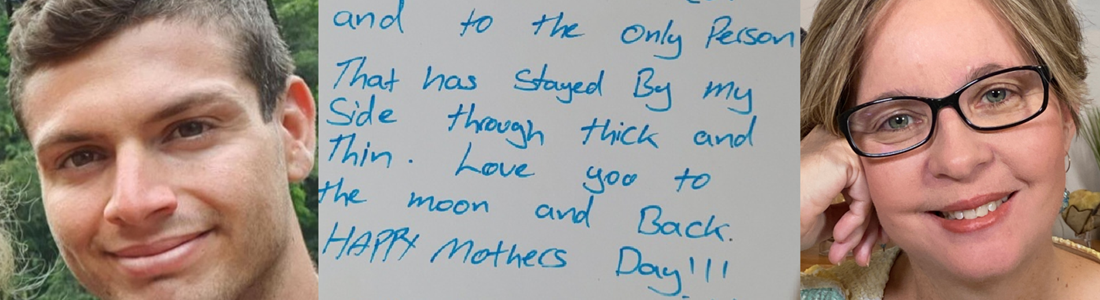 and to the only Person
That has Stayed By my
Side through thick and
Thin. Love you to
the moon and Back.
HAPPY Mothers Day!!!